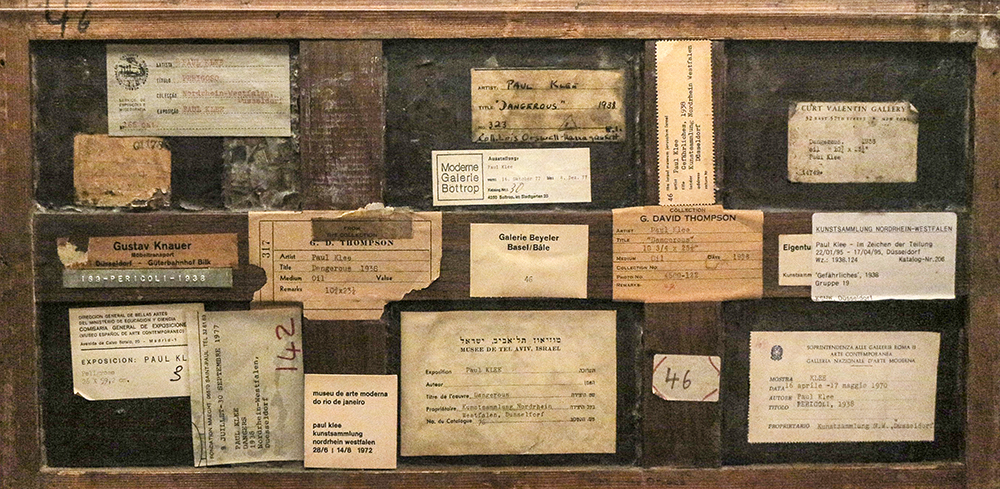 46
ARTISTA PAUL KLEE
TITULO PERIGOSO
COLECÇÃO Nordrhein-Westfalen,
Dusseldorf
EXPOSIÇÃO PAUL KLEE
ARTIST: PAUL KLEE
TITLE: "DANGEROUS" 1938
327
Moderne
Galerie
Bottrop
Ausstellung:
Paul Klee
Katalog Nr.: 30
4250 Bottrop, Im Stadtgarten 20
46
Paul Klee
Gefährliches, 1938
Kunstsammlung Nordrhein Westfalen
Düsseldorf
CURT VALENTIN GALLERY
32 EAST 57TH STREET NEW YORK
Dangerous, 1938
Paul Klee
Gustav Knauer
Möbeltransport
Düsseldorf - Güterbahnhof Bilk
180-PERICOLI-1938
317
FROM
THE COLLECTION
G. D. THOMPSON
Artist Paul Klee
Title Dangerous 1938
Medium Oil Value
Remarks
Galerie Beyeler
Basel/Bâle
46
COLLECTION
G. DAVID THOMPSON
ARTIST Paul Klee
TITLE "Dangerous"
MEDIUM Oil DATE 1938
COLLECTION NO.
PHOTO NO.
REMARKS
Eigentu
Kunstsamm
KUNSTSAMMLUNG NORDRHEIN-WESTFALEN
Paul Klee - Im Zeichen der Teilung
22/01/95 - 17/04/95, Düsseldorf
Wz.: 1938.124 Katalog-Nr.206
"Gefährliches", 1938
Gruppe 19
DIRECCION GENERAL DE BELLAS ARTES
DEL MINISTERIO DE EDUCACION Y CIENCIA
COMISARIA GENERAL DE EXPOSICIONE
(MUSEO ESPAÑOL DE ARTE CONTEMPORANEO)
EXPOSICION: PAUL KL
Peligroso
30
FONDATION MAEGHT 06570 SAINT-PAUL
2 JUILLET-30 SEPTEMBRE 1977
PAUL KLEE
DANGERS
1938
Nordrhein-Westfalen,
Dusseldorf
142
museu de arte moderna
do rio de janeiro
paul klee
kunstsammlung
nordrhein westfalen
28/6 | 14/8 1972
מוזיאון תל-אביב, ישראל
MUSEE DE TEL AVIV, ISRAEL
Exposition Paul KLEE
Auteur
Titre de l'oeuvre Dangerous
Propriétaire Kunstsammlung Nordrhein
Westfalen, Dusseldorf
No. du Catalogue
46
SOPRINTENDENZA ALLE GALLERIE ROMA II
ARTE CONTEMPORANEA
GALLERIA NAZIONALE D'ARTE MODERNA
MOSTRA KLEE
DATA 16 aprile -17 maggio 1970
AUTORE Paul Klee
TITOLO PERICOLI, 1938
PROPRIETARIO Kunstsammlung N.W., Dusseldorf